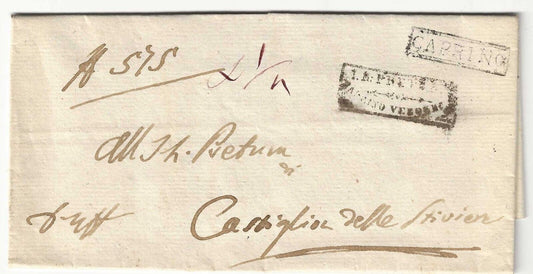 N 575
CAPRINO
I. R. PRETURA
CAPRINO VERONESE
All I. R. Pretura
di
Castiglion delle Stiviere